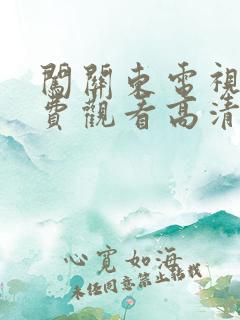 闖關東電視
費觀看高清
心寬如海
未经同意禁止转载